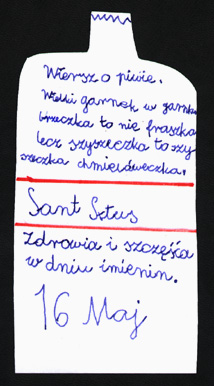 Wiersz o piwie.
Wielki garnek w garnku
beczka to nie fraszka
lecz szyszeczka to szy-
szeczka chmieloweczka.
Sant Sztus
Zdrowia i szczęśca
w dniu imienin.
16 Maj